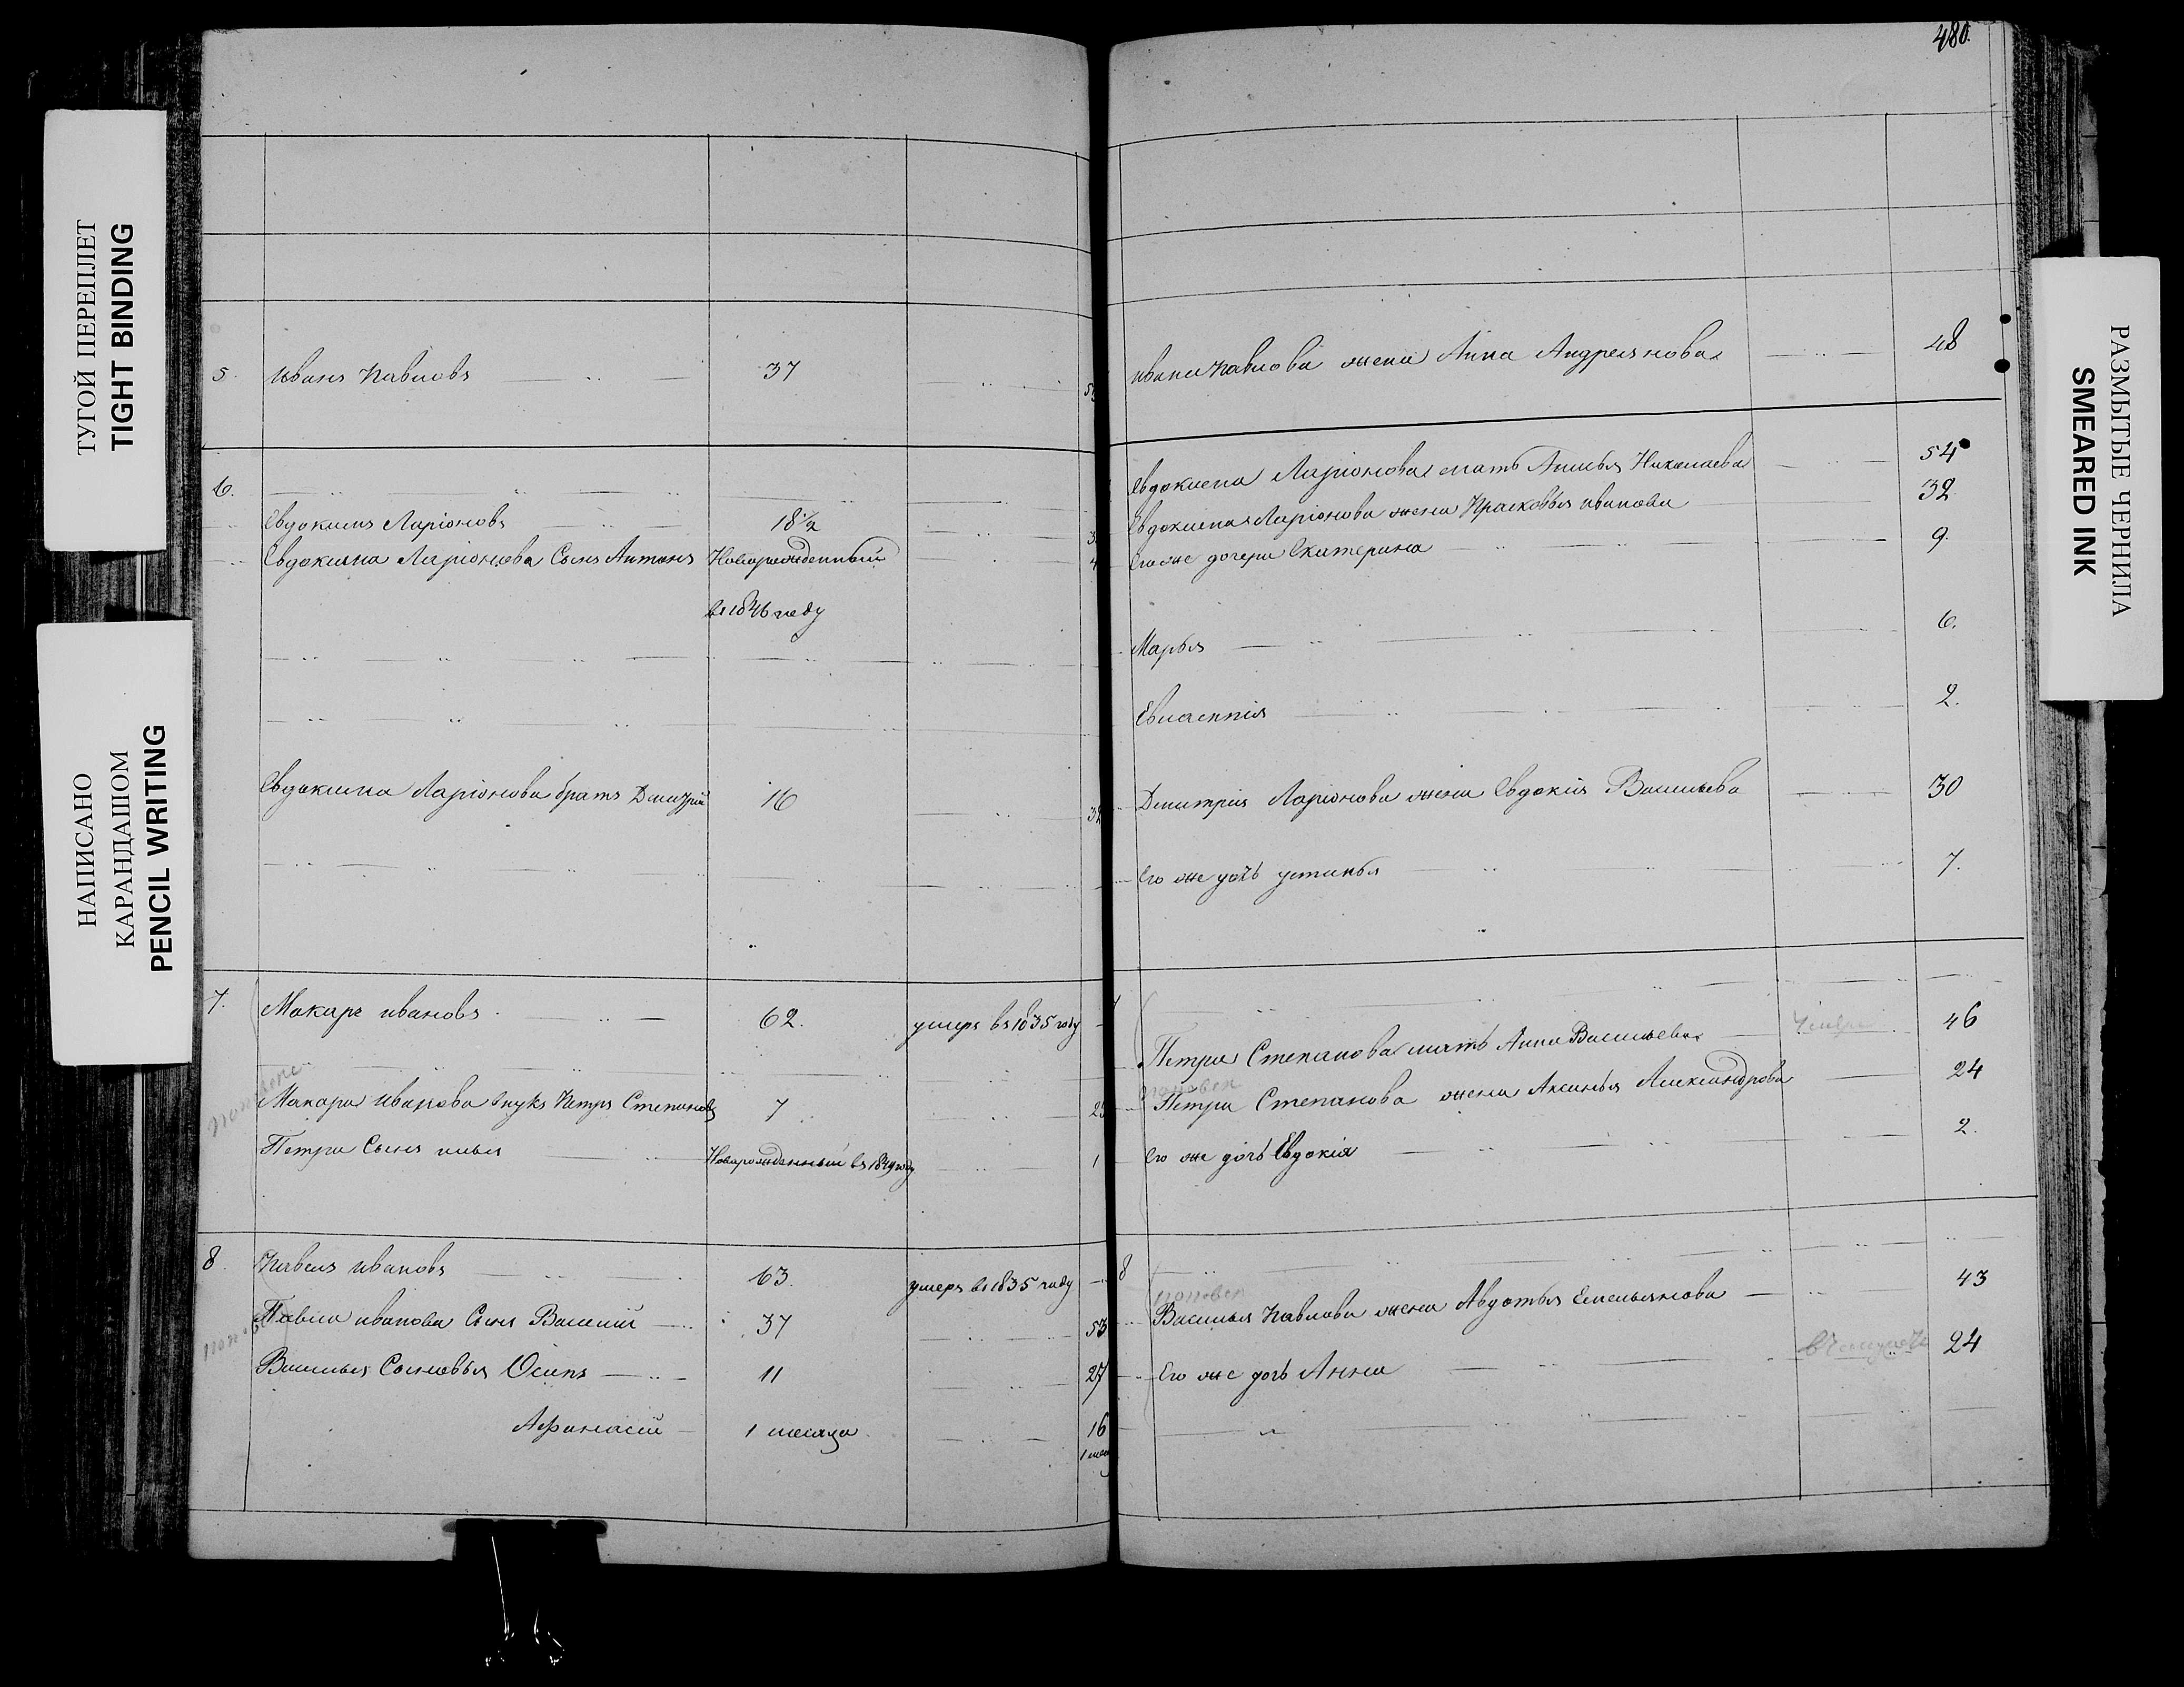 480.
ТУГОЙ ПЕРЕПЛЕТ
TIGHT BINDING
НАПИСАНО
КАРАНДАШОМ
PENCIL WRITING
5. Иванъ Павловъ 37
6.
Евдокимъ Ларіоновъ 18 1/2
Евдокима Ларіонова Сынъ Антонъ Новорожденный
въ 1846 году
Евдокима Ларіонова братъ Дмитрій 16
7. Макаръ ивановъ 62. умеръ въ 1835 году
Макара Иванова внукъ Петръ Степановъ 7
Петра Сынъ илья Новорожденный въ 1849 году 1
8. Павелъ ивановъ 63. умеръ въ 1835 году
Павла иванова Сынъ Василій 37 53
Василья Сыновья Осипъ 11 27
Афанасій 1 месяца 16
ивана Павлова жена Анна Андреянова 48
Евдокима Ларіонова мать Анисья Николаева 54
Евдокима Ларіонова жена Прасковья иванова 32
Его же дочери Екатерина 9.
Марья 6.
Евлампія 2.
Дмитрія Ларіонова жена Евдокія Васильева 30
Его же дочь устинья 7.
Петра Степанова мать Анна Васильева 46
Петра Степанова жена Аксинья Александрова 24
Его же дочь Евдокія 2.
8
Василья Павлова жена Авдотья Емельянова 43
Его же дочь Анна 24
РАЗМЫТЫЕ ЧЕРНИЛА
SMEARED INK